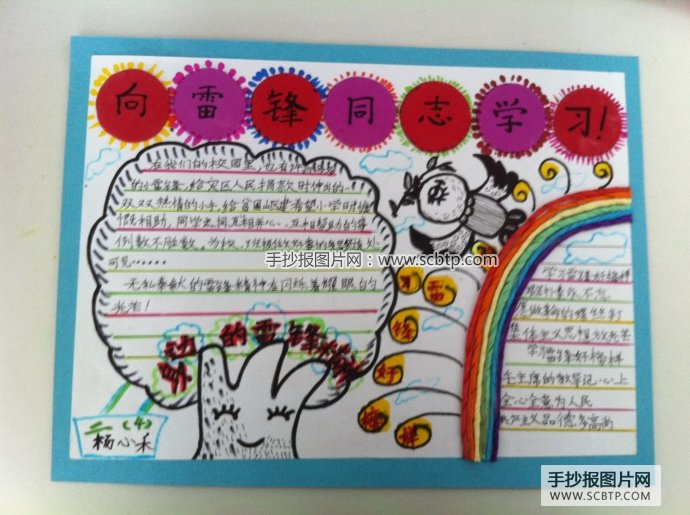 向雷锋同志学习!
在我们的校园里,也有许许多多
的小雷锋,给灾区人民捐款时伸出的一
双双热情的小手,给贫困地区建希望小学时慷
慨相助,同学之间互相关心、互相帮助的事
例数不胜数。为
可见……
无私奉献的雷锋精神在闪烁着耀眼的
光芒!
手抄报图片网 www.scbtp.com
身边的雷锋
学雷锋好榜样
学习雷锋好榜样
忠于革命
愿做革命的螺丝钉
集体主义思想放光芒
学习雷锋好榜样
毛主席的教导记心上
全心全意为人民
共产主义品德多高尚
二(4)
杨心禾
手抄报图片网
WWW.SCBTP.COM